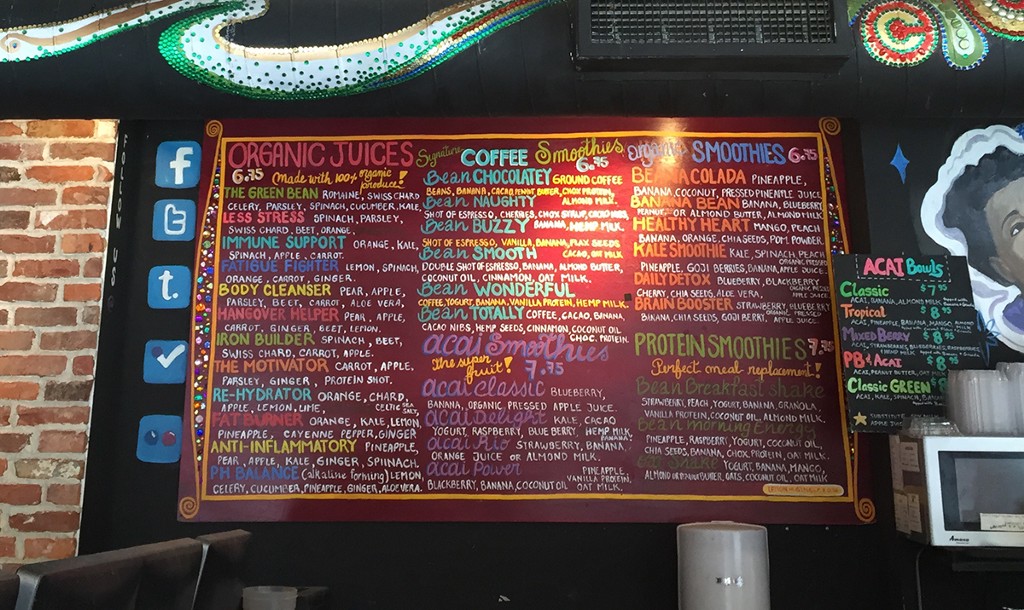 ORGANIC JUICES
6.75 Made with 100% organic produce!
THE GREEN BEAN ROMAINE, SWISS CHARD
CELERY, PARSLEY, SPINACH, CUCUMBER, KALE
LESS STRESS SPINACH, PARSLEY,
SWISS CHARD, BEET, ORANGE.
IMMUNE SUPPORT ORANGE, KALE,
SPINACH, APPLE, CARROT.
FATIGUE FIGHTER LEMON, SPINACH,
ORANGE, CARROT, GINGER
BODY CLEANSER PEAR, APPLE,
PARSLEY, BEET, CARROT, ALOE VERA.
HANGOVER HELPER PEAR, APPLE,
CARROT, GINGER, BEET, LEMON.
IRON BUILDER SPINACH, BEET,
SWISS CHARD, CARROT, APPLE.
THE MOTIVATOR CARROT, APPLE,
PARSLEY, GINGER, PROTEIN SHOT.
RE-HYDRATOR ORANGE, CHARD,
APPLE, LEMON, LIME, CELTIC SEA SALT.
FAT BURNER ORANGE, KALE, LEMON,
PINEAPPLE, CAYENNE PEPPER, GINGER
ANTI-INFLAMMATORY PINEAPPLE,
PEAR, APPLE, KALE, GINGER, SPIINACH.
PH BALANCE (alkaline forming) LEMON,
CELERY, CUCUMBER, PINEAPPLE, GINGER, ALOE VERA.
Signature COFFEE Smoothies
6.75
Bean CHOCOLATEY GROUND COFFEE
BEANS, BANANA, CACAO, PEANUT BUTTER, CHOX PROTEIN,
Bean NAUGHTY ALMOND MILK.
SHOT OF ESPRESSO, CHERRIES, CHOX SYRUP, CACAO NIBS,
Bean BUZZY BANANA, HEMP MILK.
SHOT OF ESPRESSO, VANILLA, BANANA, FLAX SEEDS
Bean SMOOTH CACAO, OAT MILK
DOUBLE SHOT OF ESPRESSO, BANANA, ALMOND BUTTER,
COCONUT OIL, CINNAMON, OAT MILK.
Bean WONDERFUL
COFFEE, YOGURT, BANANA, VANILLA PROTEIN, HEMP MILK.
Bean TOTALLY COFFEE, CACAO, BANANA,
CACAO NIBS, HEMP SEEDS, CINNAMON, COCONUT OIL,
CHOC. PROTEIN.
acai Smoothies
The super fruit! 7.75
acai classic BLUEBERRY,
BANNA, ORGANIC PRESSED APPLE JUICE.
acai KALE, CACAO
YOGURT, RASPBERRY, BLUEBERRY, HEMP MILK
acai Rio STRAWBERRY, BANANA,
ORANGE JUICE OR ALMOND MILK.
acai Power PINEAPPLE,
BLACKBERRY, BANANA, COCONUT OIL VANILLA PROTEIN, OAT MILK.
Organic SMOOTHIES 6.75
BEANA COLADA PINEAPPLE,
BANANA, COCONUT, PRESSED PINEAPPLE JUICE
BANANA BEAN BANANA, BLUEBERRY
PEANUT OR ALMOND BUTTER, ALMOND MILK
HEALTHY HEART MANGO, PEACH
BANANA, ORANGE, CHIA SEEDS, POM. POWDER.
KALE SMOOTHIE KALE, SPINACH, PEACH
PINEAPPLE, GOJI BERRIES, BANANA, APPLE JUICE.
DAILY DETOX BLUEBERRY, BLACKBERRY
CHERRY, CHIA SEEDS, ALOE VERA, APPLE JUICE
BRAIN BOOSTER STRAWBERRY, BLUEBERRY
BANANA, CHIA SEEDS, GOJI BERRY, ORGANIC PRESSED APPLE JUICE.
PROTEIN SMOOTHIES 7.75
Perfect meal replacement!
Bean Breakfast shake
STRAWBERRY, PEACH, YOGURT, BANANA, GRANOLA,
VANILLA PROTEIN, COCONUT OIL, ALMOND MILK.
Bean morning Energy
PINEAPPLE, RASPBERRY, YOGURT, COCONUT OIL,
CHIA SEEDS, BANANA, CHOX PROTEIN, OAT MILK.
Shake YOGURT, BANANA, MANGO,
ALMOND OR PEANUT BUTTER, OATS, COCONUT OIL, OAT MILK
ACAI Bowls
Classic $7.95
ACAI, BANANA, ALMOND MILK
Tropical $8.95
ACAI, PINEAPPLE, BANANA, MANGO, ALMOND
Mixed BERRY $8.95
ACAI, STRAWBERRIES, BLUEBERRIES, RASPBERRIES,
HEMP MILK
PB & ACAI $8.95
ACAI, PEANUT BUTTER, OAT MILK
Classic GREEN $8.95
ACAI, KALE, SPINACH, BANANA
SUBSTITUTE
Amana